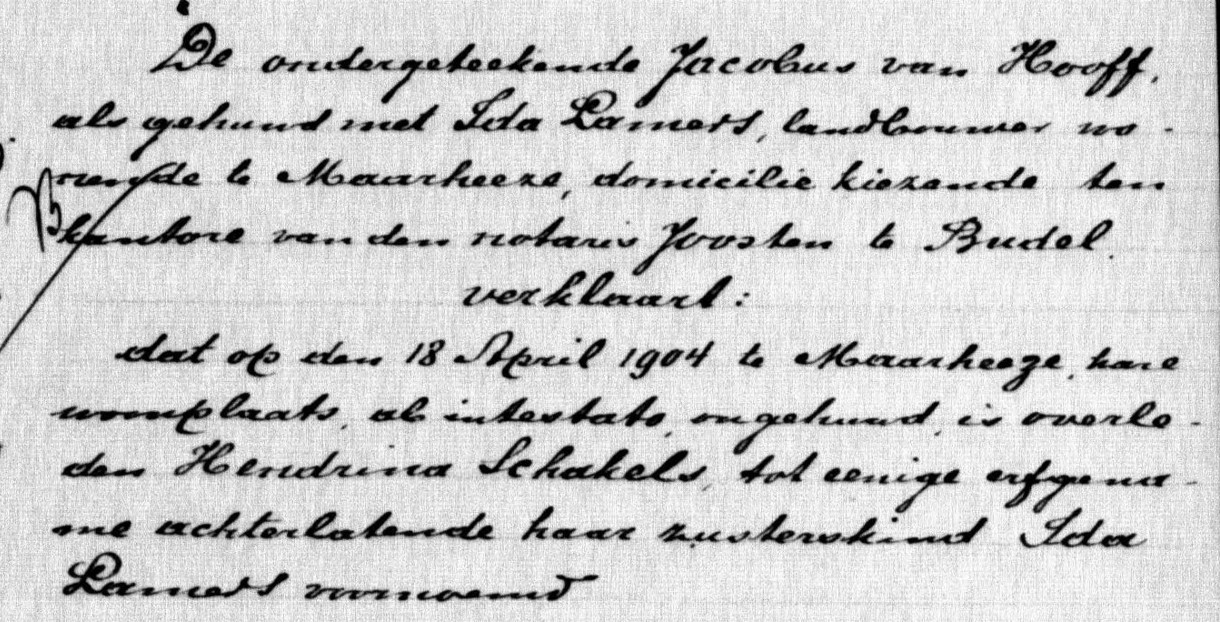 De ondergeteekende Jacobus van Hooff,
als gehuwd met Ida Lamers, landbouwer wo-
nende te Maarheeze, domicilie kiezende ten
kantore van den notaris Joosten te Budel.
verklaart:
dat op den 18 April 1904 te Maarheeze, hare
woonplaats, ab intestato, ongehuwd, is overle-
den Hendrina Schakels, tot eenige erfgena-
me achterlatende haar zusterskind Ida
Lamers voornoemd